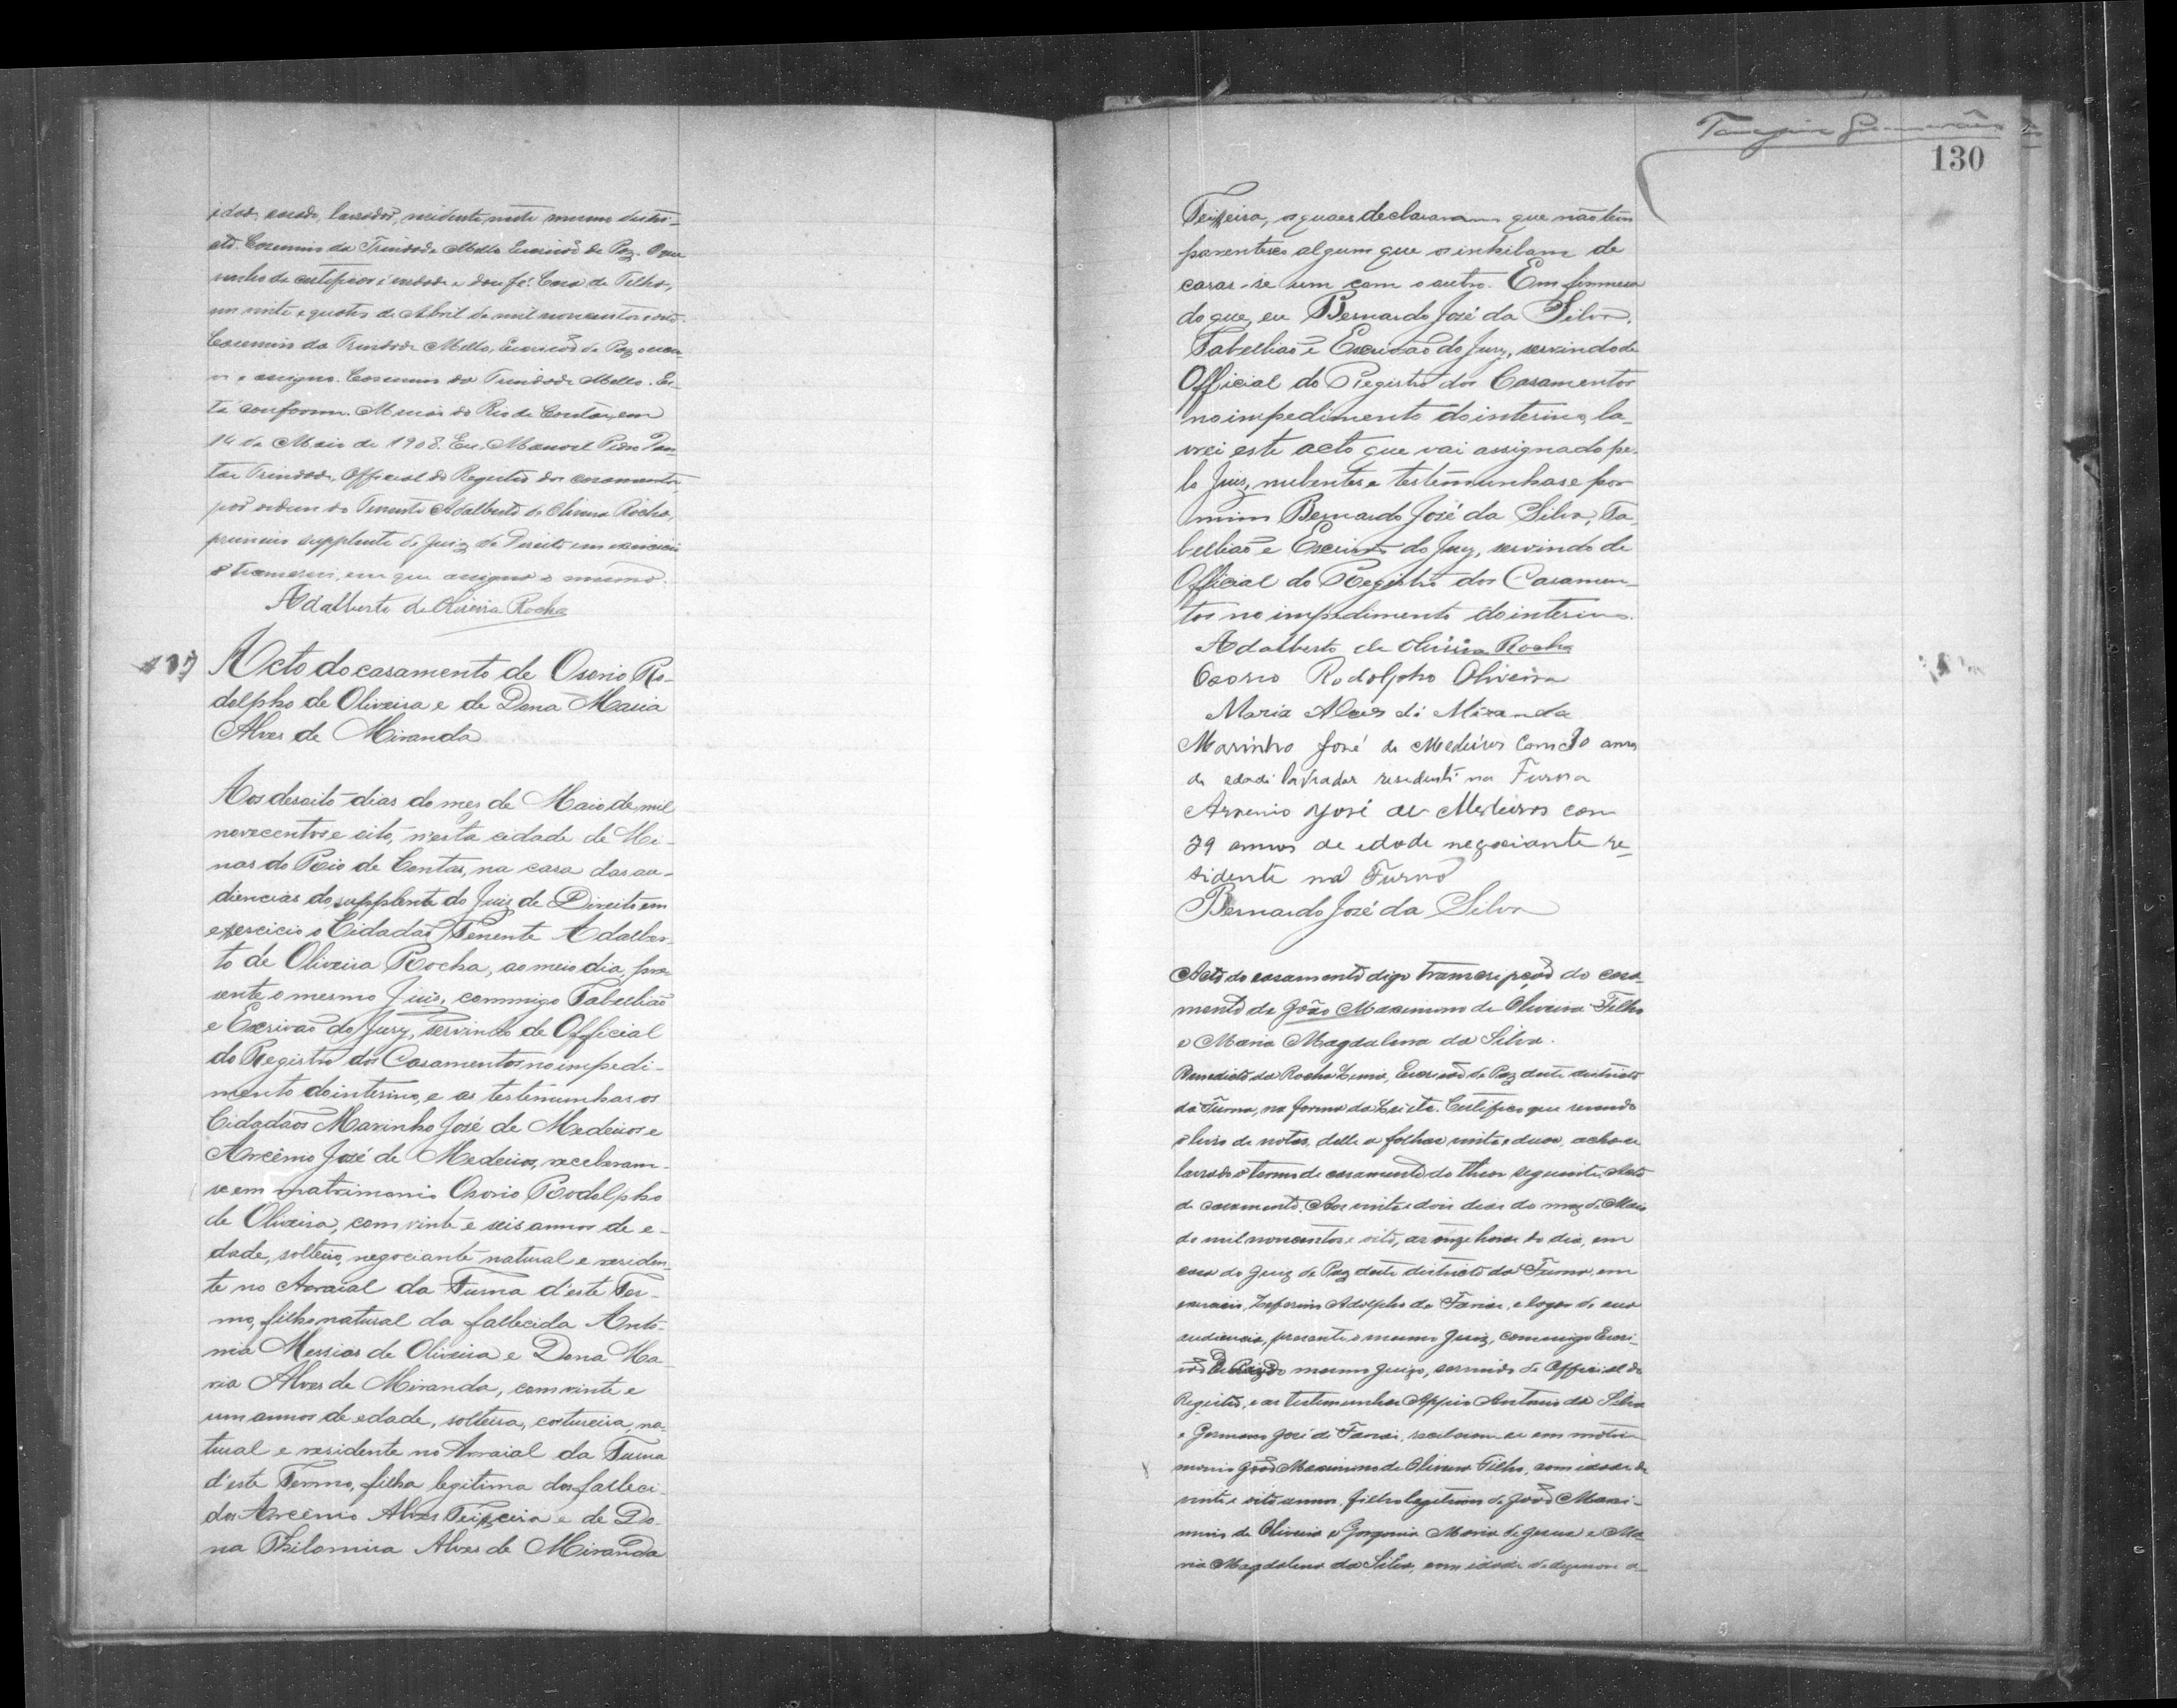 idade, casado, lavrador, residente neste mesmo distri-
cto. Cosennio da Trindade Mello Escrivão de Paz. O que
venho de certificar é verdade e dou fé. Casa de Telha,
em vinte e quatro de Abril de mil novecentos e oito.
da Trindade Mello, Escrivão de Paz o escre-
vi e assigno. da Trindade Mello. Es-
tá conforme. Minas do Rio de Contas, em
14 de Maio de 1908. Eu, Manoel Pedro Dan-
tas Trindade, Official do Registro dos casamentos,
por ordem do Tenente Adalberto de Oliveira Rocha,
primeiro supplente do Juiz de Direito em exercicio
o transcrevi, em que assigna o mesmo.
Adalberto de Oliveira Rocha
Acto do casamento de Osorio Ro-
dolpho de Oliveira e de Dona Maria
Alves de Miranda
Aos desoito dias do mes de Maio de mil
novecentos e oito, n'esta cidade de Mi-
nas do Rio de Contas, na casa das au-
diencias do supplente do Juiz de Direito em
exercicio o Cidadão Tenente Adalber-
to de Oliveira Rocha, ao meio dia, pre-
sente o mesmo Juis, commigo Tabellião
e Escrivão do Jury, servindo de Official
do Registro dos Casamentos no impedi-
mento do interino, e as testemunhas os
Cidadãos Marinho José de Medeiros e
Arcênio José de Medeiros, receberam-
se em matrimonio Osorio Rodolpho
de Oliveira, com vinte e seis annos de e-
dade, solteiro, negociante natural e residen-
te no Arraial da Furna d'este Ter-
mo, filho natural da fallecida Antô-
nia Messias de Oliveira e Dona Ma-
ria Alves de Miranda, com vinte e
um annos de edade, solteira, costureira, na-
tural e residente no Arraial da Furna
d'este Termo, filha legitima dos falleci-
dos Arcênio Alves Teixeira e de Do-
na Philomira Alves de Miranda
130
Teixeira, os quaes declararam que não têm
parentesco algum que os inhibam de
casar-se um com o outro. Em firmesa
do que, eu Bernardo José da Silva,
Tabellião e Escrivão do Jury, servindo de
Official do Registro dos Casamentos
no impedimento do interino, la-
vrei este acto que vai assignado pe-
lo Juis, nubentes e testemunhas e por
mim Bernardo José da Silva, Ta-
bellião e Escrivão do Jury, servindo de
Official do Registro dos Casamen-
tos no impedimento do interino.
Adalberto de Oliveira Rocha
Osorio Rodolpho Oliveira
Maria Alves di Miranda
Marinho José de Medeiros com 30 annos
de edade lavrador residente na Furna
Arsenio José de Medeiros com
29 annos de edade negociante re-
sidente na Furna
Bernardo José da Silva
Acto do casamento digo transcripção do casa-
mento de João Maximiano de Oliveira Filho
e Maria Magdalena da Silva.
Benedicto da Rocha Lima, Escrivão de Paz deste districto
da Furna, na forma da Lei etc. Certifico que revendo
o livro de notas, delle a folhas vinte e duas, acha-se
lavrado o termo de casamento do theor seguinte: Acto
de casamento. Aos vinte e dois dias do mez de Maio
de mil novecentos e oito, as onze horas do dia, em
casa do Juiz de Paz deste districto da Furna, em
exercicio, Zeferino Adolpho de Farias, e logar de sua
audiencia, presente o mesmo Juiz, commigo Escri-
vão de Paz do mesmo Juizo, servindo de Official do
Registro, e as testemunhas Appio Antonio da Silva
e Germano José de Farias, receberam-se em matri-
monio João Maximiano de Oliveira Filho, com idade de
vinte e oito annos, filho legitimo de João Maxi-
miano de Oliveira e Gorgonia Maria de Jesus e Ma-
ria Magdalena da Silva, com idade de dezenove a-